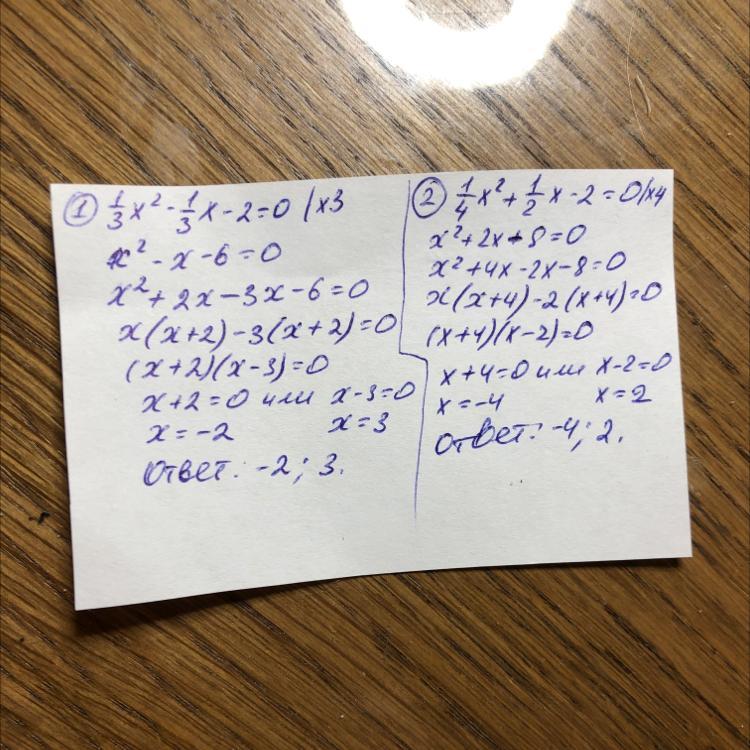 ① 1/3 x² - 1/3 x - 2 = 0 | x3
x² - x - 6 = 0
x² + 2x - 3x - 6 = 0
x(x+2) - 3(x+2) = 0
(x+2)(x-3) = 0
x+2=0 или x-3=0
x = -2 x = 3
Ответ: -2; 3.
② 1/4 x² + 1/2 x - 2 = 0 | x4
x² + 2x - 8 = 0
x² + 4x - 2x - 8 = 0
x(x+4) - 2(x+4) = 0
(x+4)(x-2) = 0
x+4=0 или x-2=0
x = -4 x = 2
Ответ: -4; 2.